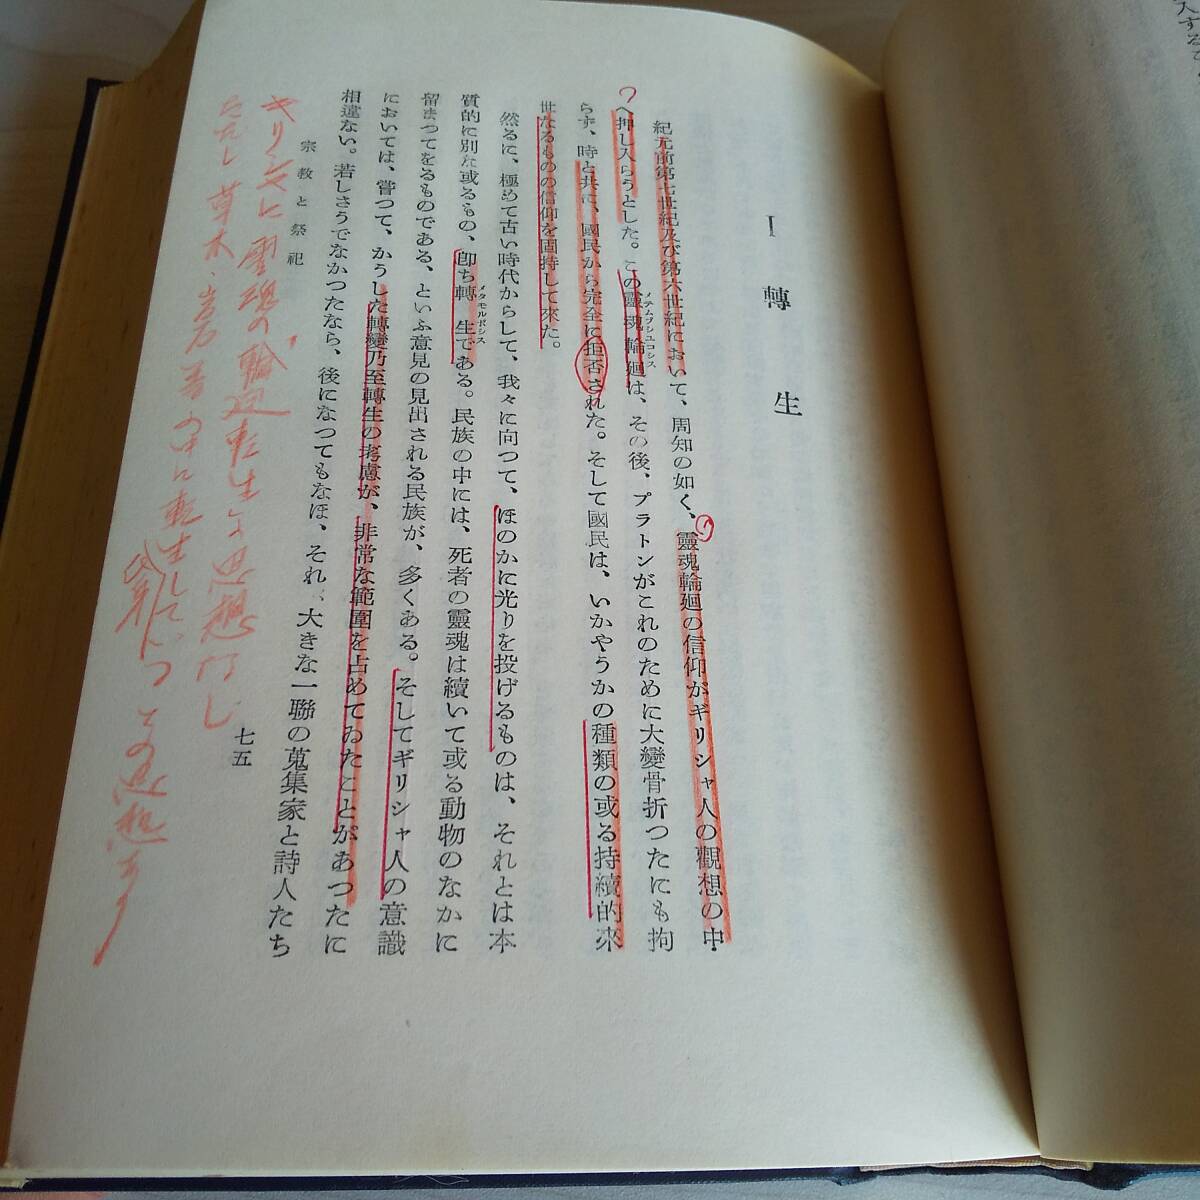 I 轉生
紀元前第七世紀及び第六世紀において、周知の如く、靈魂輪廻の信仰がギリシャ人の觀想の中
へ押し入らうとした。この靈魂輪廻は、その後、プラトンがこれのために大變骨折つたにも拘
メテムプシユコシス
らず、時と共に、國民から完全に拒否された。そして國民は、いかやうかの種類の或る持續的來
世なるものの信仰を固持して來た。
然るに、極めて古い時代からして、我々に向つて、ほのかに光りを投げるものは、それとは本
質的に別な或るもの、卽ち轉生である。民族の中には、死者の靈魂は續いて或る動物のなかに
メタモルポシス
留まつてをるものである、といふ意見の見出される民族が、多くある。そしてギリシャ人の意識
においては、嘗つて、かうした轉變乃至轉生の考慮が、非常な範圍を占めてゐたことがあつたに
相違ない。若しさうでなかつたなら、後になつてもなほ、それ、大きな一聯の蒐集家と詩人たち
宗教と祭祀
七五
?
キリシャに靈魂の輪廻転生の思想なし
ただし草木、岩石等の中に転生して
との思想あり
入する